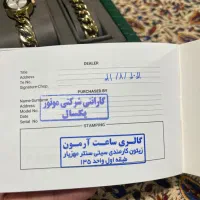 DEALER
Title
Address
Tel No.
Signature/Chop
PURCHASED BY
Name/Surname
Address
Model No.
Date
Serial No.
گارانتی شرکتی موتور
یکسال
STAMPING
گالری ساعت آرمون
زیتون کارمندی سیتی سنتر مهزیار
طبقه اول واحد ۱۳۵